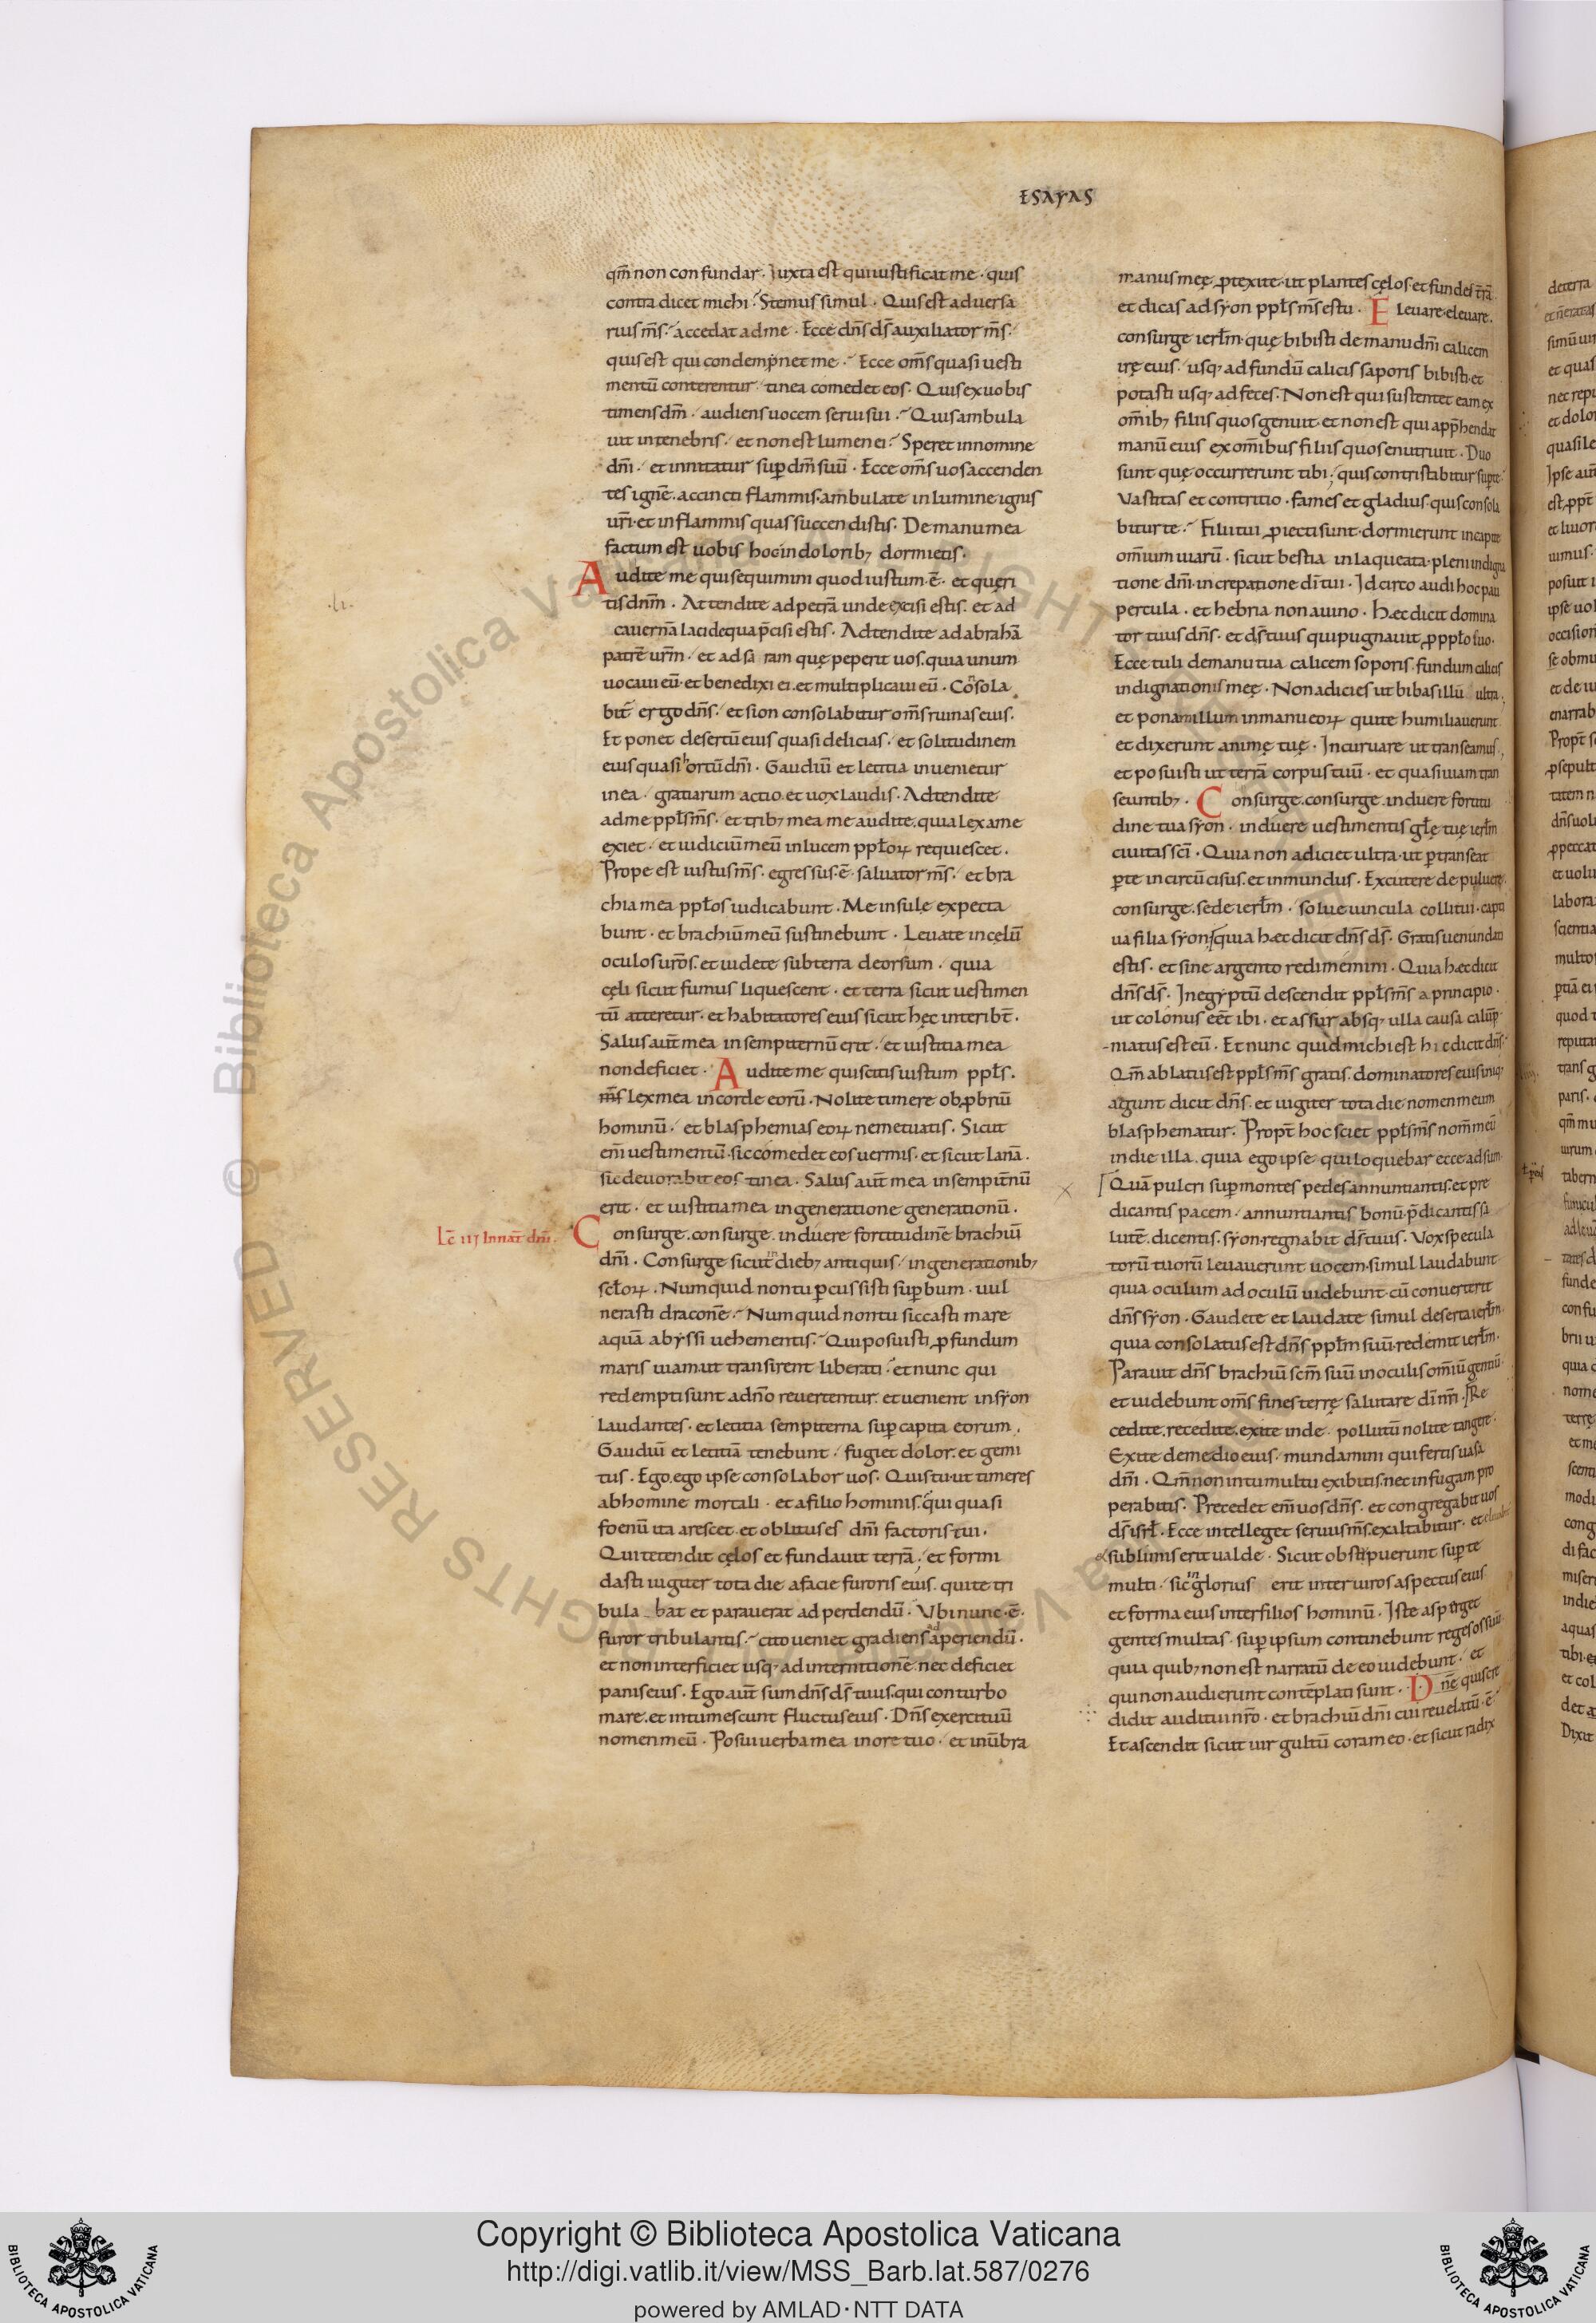 ESAYAS
qm̄ non confundar. Iuxta est qui iustificat me. quis
contra dicet michi? Stemus simul. Quis est adversa
rius m̄s? accedat ad me. Ecce dn̄s ds̄ auxiliator m̄s.
quis est qui condemp̄net me? Ecce om̄s quasi uesti
mentū conterentur. tinea comedet eos. Quis ex uobis
timens dm̄. audiens uocem serui sui? Quis ambula
uit in tenebris. et non est lumen ei? Speret in nomine
dn̄i. et innitatur sup̄ dm̄ suū. Ecce om̄s uos accenden
tes ignē. accincti flammis. ambulate in lumine ignis
ur̄i. et in flammis quas succendistis. De manu mea
factum est uobis hoc in dolorib; dormietis.
Audite me qui sequimini quod iustum .ē. et quęri
tis dn̄m. Attendite ad petrā unde excisi estis. et ad
cauernā laci de qua p̄cisi estis. Adtendite ad abrahā
patrē ur̄m. et ad sa ram quę peperit uos. quia unum
uocaui eū. et benedixi ei. et multiplicaui eū. Cōsola
bit̄ ergo dn̄s. et sion consolabitur om̄s ruinas eius.
Et ponet desertū eius quasi delicias. et solitudinem
eius quasi hortū dn̄i. Gaudiū et letitia inuenietur
in ea. gratiarum actio. et uox laudis. Adtendite
ad me ppl̄s m̄s. et trib; mea me audite. quia lex a me
exiet. et iudiciū meū in lucem ppl̄oꝝ requiescet.
Prope est iustus m̄s. egressus .ē. saluator m̄s. et bra
chia mea ppl̄os iudicabunt. Me insulę expecta
bunt. et brachiū meū sustinebunt. Leuate in cęlū
oculos ur̄os. et uidete subterra deorsum. quia
cęli sicut fumus liquescent. et terra sicut uestimen
tū atteretur. et habitatores eius sicut hęc interibt̄.
Salus aut̄ mea in sempiternū erit. et iustitia mea
non deficiet. Audite me qui scitis iustum ppl̄s.
m̄s lex mea in corde eorū. Nolite timere obꝓbriū
hominū. et blasphemias eoꝝ ne metuatis. Sicut
em̄ uestimentū. sic comedet eos uermis. et sicut lanā.
sic deuorabit eos tinea. Salus aut̄ mea in sempit̄nū
erit. et iustitia mea in generatione generationū.
Lc̄ iij In nat̄ dm̄.
Consurge. consurge. induere fortitudinē brachiū
dn̄i. Consurge sicut in dieb; antiquis. in generationib;
scl̄oꝝ. Numquid non tu p̄cussisti sup̄bum. uul
nerasti draconē? Numquid non tu siccasti mare
aquā abyssi uehementis? Qui posuisti ꝓfundum
maris uiam ut transirent liberati? et nunc qui
redempti sunt a dn̄o reuertentur. et uenient in syon
laudantes. et letitia sempiterna sup̄ capita eorum.
Gaudiū et letitiā tenebunt. fugiet dolor. et gemi
tus. Ego. ego ipse consolabor uos. Quis tu ut timeres
ab homine mortali. et a filio hominis. qui quasi
foenū ita arescet. et oblitus es dn̄i factoris tui.
Qui tetendit cęlos et fundauit terrā. et formi
dasti iugiter tota die a facie furoris eius. qui te tri
bula_bat et parauerat ad perdendū. Vbi nunc .ē.
furor tribulantis? cito ueniet gradiens ad aperiendū.
et non interficiet usq; ad internitionē. nec deficiet
panis eius. Ego aut̄ sum dn̄s ds̄ tuus. qui conturbo
mare. et intumescunt fluctus eius. Dn̄s exercituū
nomen meū. Posui uerba mea in ore tuo. et in ūbra
manus meę ꝓtexi te. ut plantes cęlos. et fundes tr̄ā.
et dicas ad syon ppl̄s m̄s es tu. Eleuare. eleuare.
consurge ierl̄m. quę bibisti de manu dn̄i calicem
irę eius. usq; ad fundū calicis saporis bibisti. et
potasti usq; ad feces. Non est qui sustentet eam ex
om̄ib; filiis quos genuit. et non est qui app̄hendat
manū eius ex om̄ibus filiis quos enutriuit. Duo
sunt quę occurrerunt tibi. quis contristabitur sup̄ te.
Vastitas et contritio. fames et gladius. quis consola
bitur te? Filii tui ꝓiecti sunt. dormierunt in capite
om̄ium uiarū. sicut bestia inlaqueata. pleni indigna
tione dn̄i. increpatione dī tui. Idcirco audi hoc pau
percula. et hebria non a uino. Hæc dicit domina
tor tuus dn̄s. et ds̄ tuus qui pugnauit ꝓ ppl̄o suo.
Ecce tuli de manu tua calicem soporis. fundum calicis
indignationis meę. Non adicies ut bibas illū ultra.
et ponam illum in manu eoꝝ qui te humiliauerunt
et dixerunt animę tuę. Incuruare ut transeamus.
et posuisti ut terrā corpus tuū. et quasi uiam tran
seuntib;. Consurge. consurge. induere fortitu
dine tua syon. induere uestimentis gl̄ę tuę ierl̄m
ciuitas sc̄i. Quia non adiciet ultra. ut p̄transeat
p̄ te incircūcisus. et inmundus. Excutere de puluere
consurge. sede ierl̄m. solue uincula colli tui. capti
ua filia syon. quia hæc dicit dn̄s ds̄. Gratis uenundati
estis. et sine argento redimemini. Quia hæc dicit
dn̄s ds̄. In egyptū descendit ppl̄s m̄s a principio.
ut colonus eēt ibi. et assur absq; ulla causa calūp
niatus est eū. Et nunc quid michi est hic dicit dn̄s.
Qm̄ ablatus est ppl̄s m̄s gratis. dominatores eius iniq;
agunt dicit dn̄s. et iugiter tota die nomen meum
blasphematur. Propt̄ hoc sciet ppl̄s m̄s nom̄ meū
in die illa. quia ego ipse qui loquebar ecce adsum.
Quā pulcri sup̄ montes pedes annuntiantis. et pre
dicantis pacem. annuntiantis bonū. p̄dicantis sa
lutē. dicentis. syon. regnabit ds̄ tuus. Vox specula
torū tuorū leuauerunt uocem. simul laudabunt
quia oculum ad oculū uidebunt. cū conuerterit
dn̄s syon. Gaudete et laudate simul deserta ierl̄m.
quia consolatus est dn̄s ppl̄m suū. redemit ierl̄m.
Parauit dn̄s brachiū scm̄ suū in oculis om̄iū gentiū.
et uidebunt om̄s fines terrę salutare dī nr̄i. Re
cedite. recedite. exite inde. pollutū nolite tangere.
Exite de medio eius. mundamini qui fertis uasa
dn̄i. Qm̄ non in tumultu exibitis. nec in fugam pro
perabitis. Precedet em̄ uos dn̄s. et congregabit uos
ds̄ isrl̄. Ecce intelleget seruus m̄s. exaltabitur. et
sublimis erit ualde. Sicut obstipuerunt sup̄ te
multi. sic inglorius erit inter uiros aspectus eius
et forma eius inter filios hominū. Iste asperget
gentes multas. sup̄ ipsum continebunt reges os suū.
quia quib; non est narratū de eo uidebunt. et
qui non audierunt contēplati sunt. Dn̄e quis cre
didit auditui nr̄o. et brachiū dn̄i cui reuelatū .ē.
Et ascendit sicut uirgultū coram eo. et sicut radix
Copyright © Biblioteca Apostolica Vaticana
http://digi.vatlib.it/view/MSS_Barb.lat.587/0276
powered by AMLAD·NTT DATA